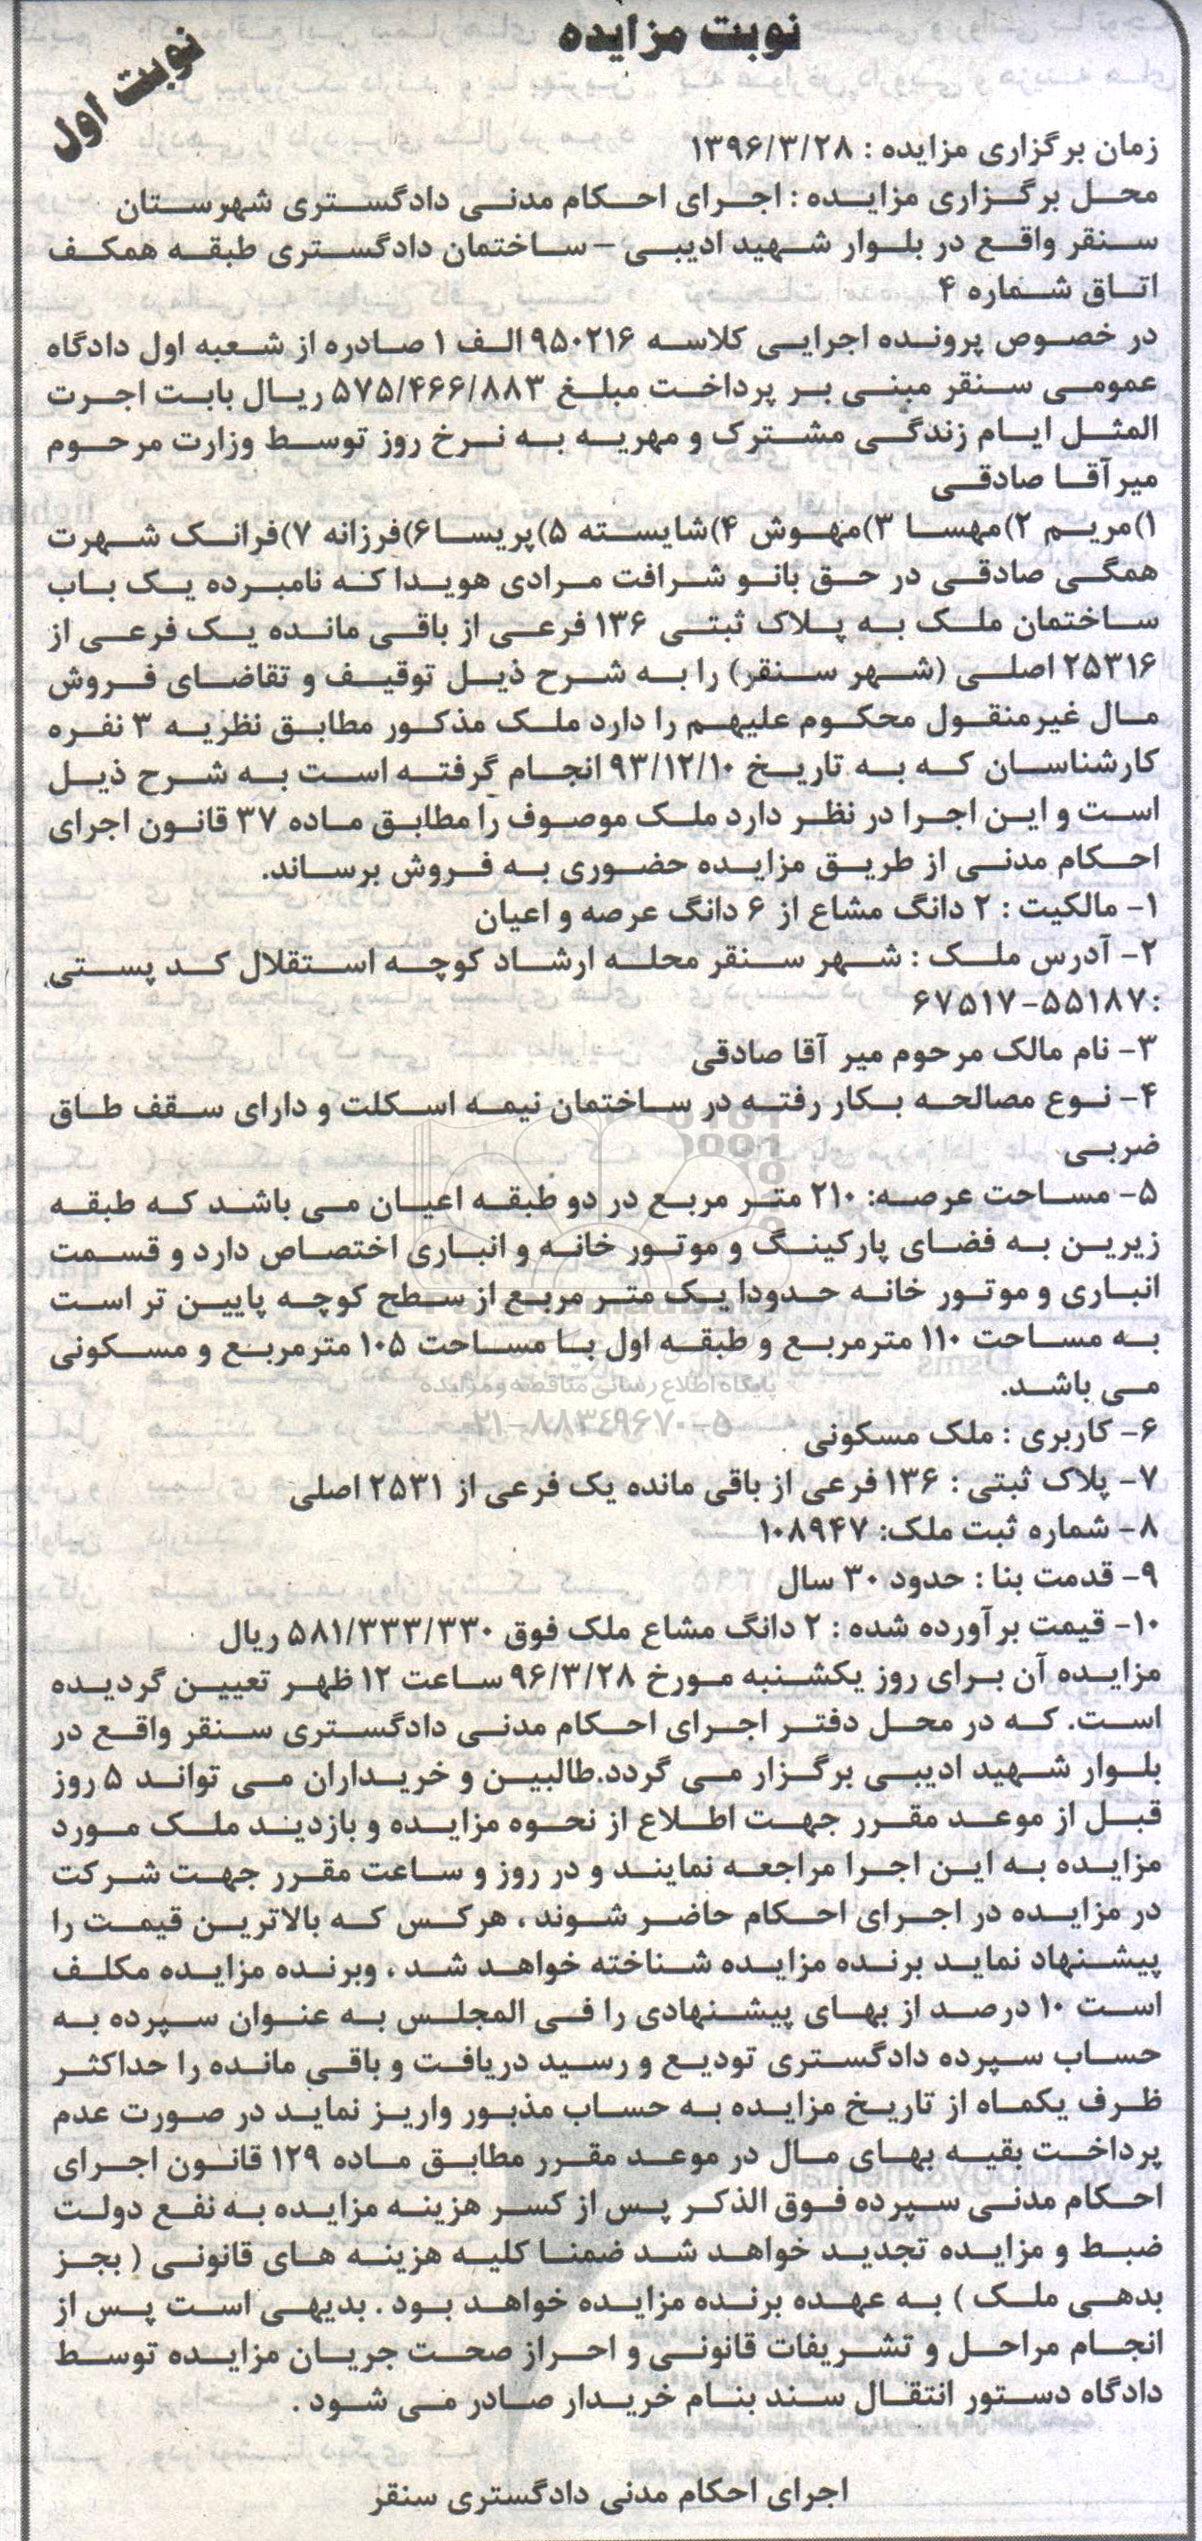 نوبت مزایده
نوبت اول
زمان برگزاری مزایده : ۱۳۹۶/۳/۲۸
محل برگزاری مزایده : اجرای احکام مدنی دادگستری شهرستان
سنقر واقع در بلوار شهید ادیبی – ساختمان دادگستری طبقه همکف
اتاق شماره ۴
در خصوص پرونده اجرایی کلاسه ۹۵۰۲۱۶ الف ۱ صادره از شعبه اول دادگاه
عمومی سنقر مبنی بر پرداخت مبلغ ۵۷۵/۴۶۶/۸۸۳ ریال بابت اجرت
المثل ایام زندگی مشترک و مهریه به نرخ روز توسط وزارت مرحوم
میرآقا صادقی
۱)مریم ۲)مهسا ۳)مهوش ۴)شایسته ۵)پریسا۶)فرزانه ۷)فرانک شهرت
همگی صادقی در حق بانو شرافت مرادی هویدا که نامبرده یک باب
ساختمان ملک به پلاک ثبتی ۱۳۶ فرعی از باقی مانده یک فرعی از
۲۵۳۱۶ اصلی (شهر سنقر) را به شرح ذیل توقیف و تقاضای فروش
مال غیرمنقول محکوم علیهم را دارد ملک مذکور مطابق نظریه ۳ نفره
کارشناسان که به تاریخ ۹۳/۱۲/۱۰ انجام گرفته است به شرح ذیل
است و این اجرا در نظر دارد ملک موصوف را مطابق ماده ۳۷ قانون اجرای
احکام مدنی از طریق مزایده حضوری به فروش برساند.
۱- مالکیت : ۲ دانگ مشاع از ۶ دانگ عرصه و اعیان
۲- آدرس ملک : شهر سنقر محله ارشاد کوچه استقلال کد پستی
:۶۷۵۱۷-۵۵۱۸۷
۳- نام مالک مرحوم میر آقا صادقی
۴- نوع مصالحه بکار رفته در ساختمان نیمه اسکلت و دارای سقف طاق
ضربی
۵- مساحت عرصه: ۲۱۰ متر مربع در دو طبقه اعیان می باشد که طبقه
زیرین به فضای پارکینگ و موتور خانه و انباری اختصاص دارد و قسمت
انباری و موتور خانه حدودا یک متر مربع از سطح کوچه پایین تر است
به مساحت ۱۱۰ مترمربع و طبقه اول با مساحت ۱۰۵ مترمربع و مسکونی
می باشد.
پایگاه اطلاع رسانی مناقصه و مزایده
۰۲۱-۸۸۳۴۹۶۷۰-۵
۶- کاربری : ملک مسکونی
۷- پلاک ثبتی : ۱۳۶ فرعی از باقی مانده یک فرعی از ۲۵۳۱ اصلی
۸- شماره ثبت ملک: ۱۰۸۹۴۷
۹- قدمت بنا : حدود ۳۰ سال
۱۰- قیمت برآورده شده : ۲ دانگ مشاع ملک فوق ۵۸۱/۳۳۳/۳۳۰ ریال
مزایده آن برای روز یکشنبه مورخ ۹۶/۳/۲۸ ساعت ۱۲ ظهر تعیین گردیده
است. که در محل دفتر اجرای احکام مدنی دادگستری سنقر واقع در
بلوار شهید ادیبی برگزار می گردد.طالبین و خریداران می تواند ۵ روز
قبل از موعد مقرر جهت اطلاع از نحوه مزایده و بازدید ملک مورد
مزایده به این اجرا مراجعه نمایند و در روز و ساعت مقرر جهت شرکت
در مزایده در اجرای احکام حاضر شوند ، هرکس که بالاترین قیمت را
پیشنهاد نماید برنده مزایده شناخته خواهد شد ، وبرنده مزایده مکلف
است ۱۰ درصد از بهای پیشنهادی را فی المجلس به عنوان سپرده به
حساب سپرده دادگستری تودیع و رسید دریافت و باقی مانده را حداکثر
ظرف یکماه از تاریخ مزایده به حساب مذبور واریز نماید در صورت عدم
پرداخت بقیه بهای مال در موعد مقرر مطابق ماده ۱۲۹ قانون اجرای
احکام مدنی سپرده فوق الذکر پس از کسر هزینه مزایده به نفع دولت
ضبط و مزایده تجدید خواهد شد ضمنا کلیه هزینه های قانونی ( بجز
بدهی ملک ) به عهده برنده مزایده خواهد بود . بدیهی است پس از
انجام مراحل و تشریفات قانونی و احراز صحت جریان مزایده توسط
دادگاه دستور انتقال سند بنام خریدار صادر می شود .
اجرای احکام مدنی دادگستری سنقر